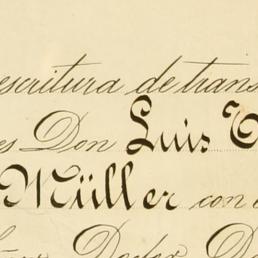 escritura de trans
es Don Luis T
Müller con
Doctor D